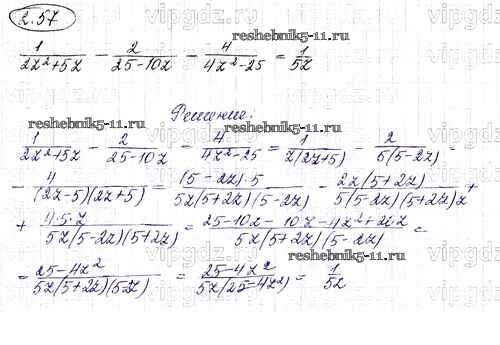 2.57
1/(2z²+5z) − 2/(25−10z) − 4/(4z²−25) = 1/5z
reshebnik5-11.ru
Решение:
reshebnik5-11.ru
1/(2z²+5z) − 2/(25−10z) − 4/(4z²−25) = 1/(z(2z+5)) − 2/(5(5−2z)) −
− 4/((2z−5)(2z+5)) = ((5−2z)·5)/(5z(5+2z)(5−2z)) − (2z(5+2z))/(5(5−2z)(5+2z)z) +
+ (4·5·z)/(5z(5−2z)(5+2z)) = (25−10z−10z−4z²+20z)/(5z(5+2z)(5−2z)) =
reshebnik5-11.ru
= (25−4z²)/(5z(5+2z)(5−2z)) = (25−4z²)/(5z(25−4z²)) = 1/5z
vipgdz.ru